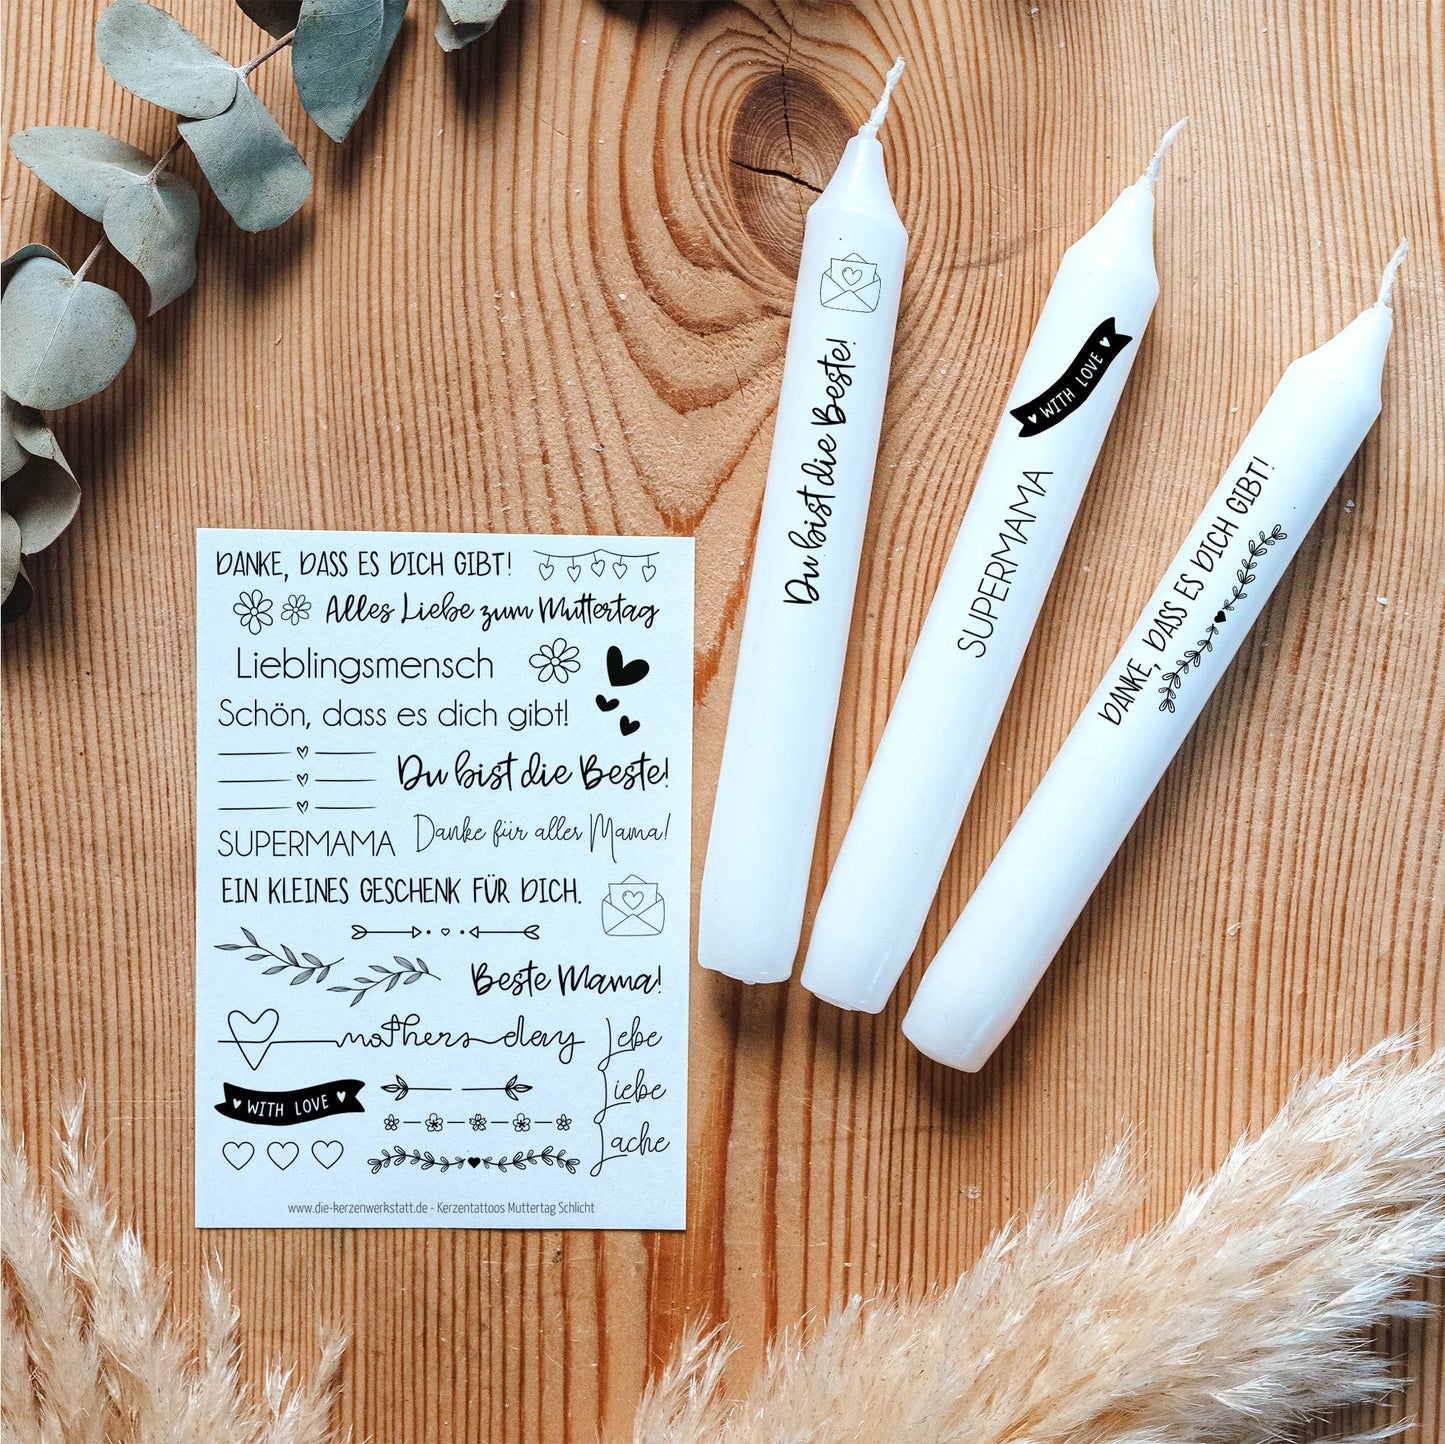 DANKE, DASS ES DICH GIBT!
Alles Liebe zum Muttertag
Lieblingsmensch
Schön, dass es dich gibt!
Du bist die Beste!
SUPERMAMA
Danke für alles Mama!
EIN KLEINES GESCHENK FÜR DICH.
Beste Mama!
mothers day
Lebe
Liebe
Lache
WITH LOVE
www.die-kerzenwerkstatt.de - Kerzentattoos Muttertag Schlicht
Du bist die Beste!
WITH LOVE
SUPERMAMA
DANKE, DASS ES DICH GIBT!